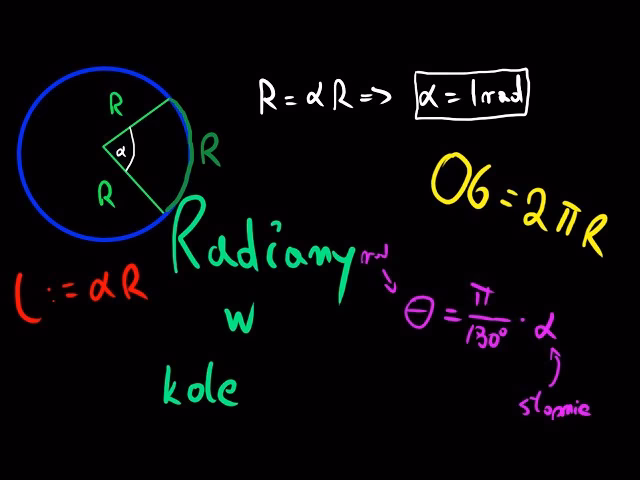 R
R
α
R
R = αR => α = 1 rad
OG = 2πR
l := αR
Radiany
w
kole
rad
θ = π/130° · α
stopnie